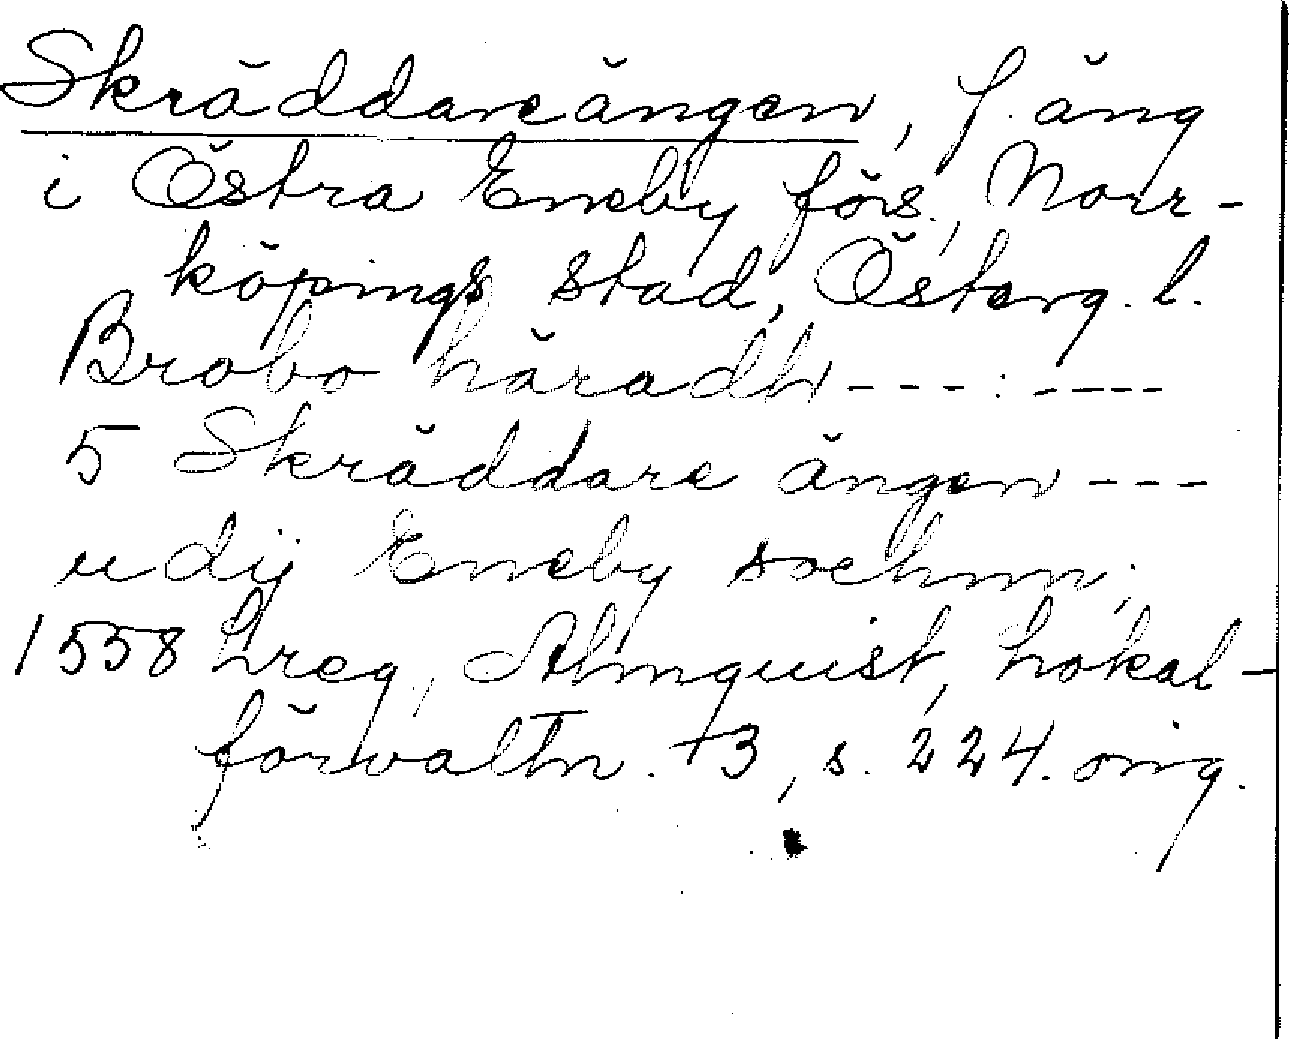 Skräddareängen, f. äng
i Östra Eneby förs., Norr-
köpings stad, Österg. l.
Brobo häradh ---:----
5 Skräddare ängen ---
udij Eneby sochnn;
1558 Lreg., Almquist, Lokal-
förvaltn. +3, s. 224. orig.